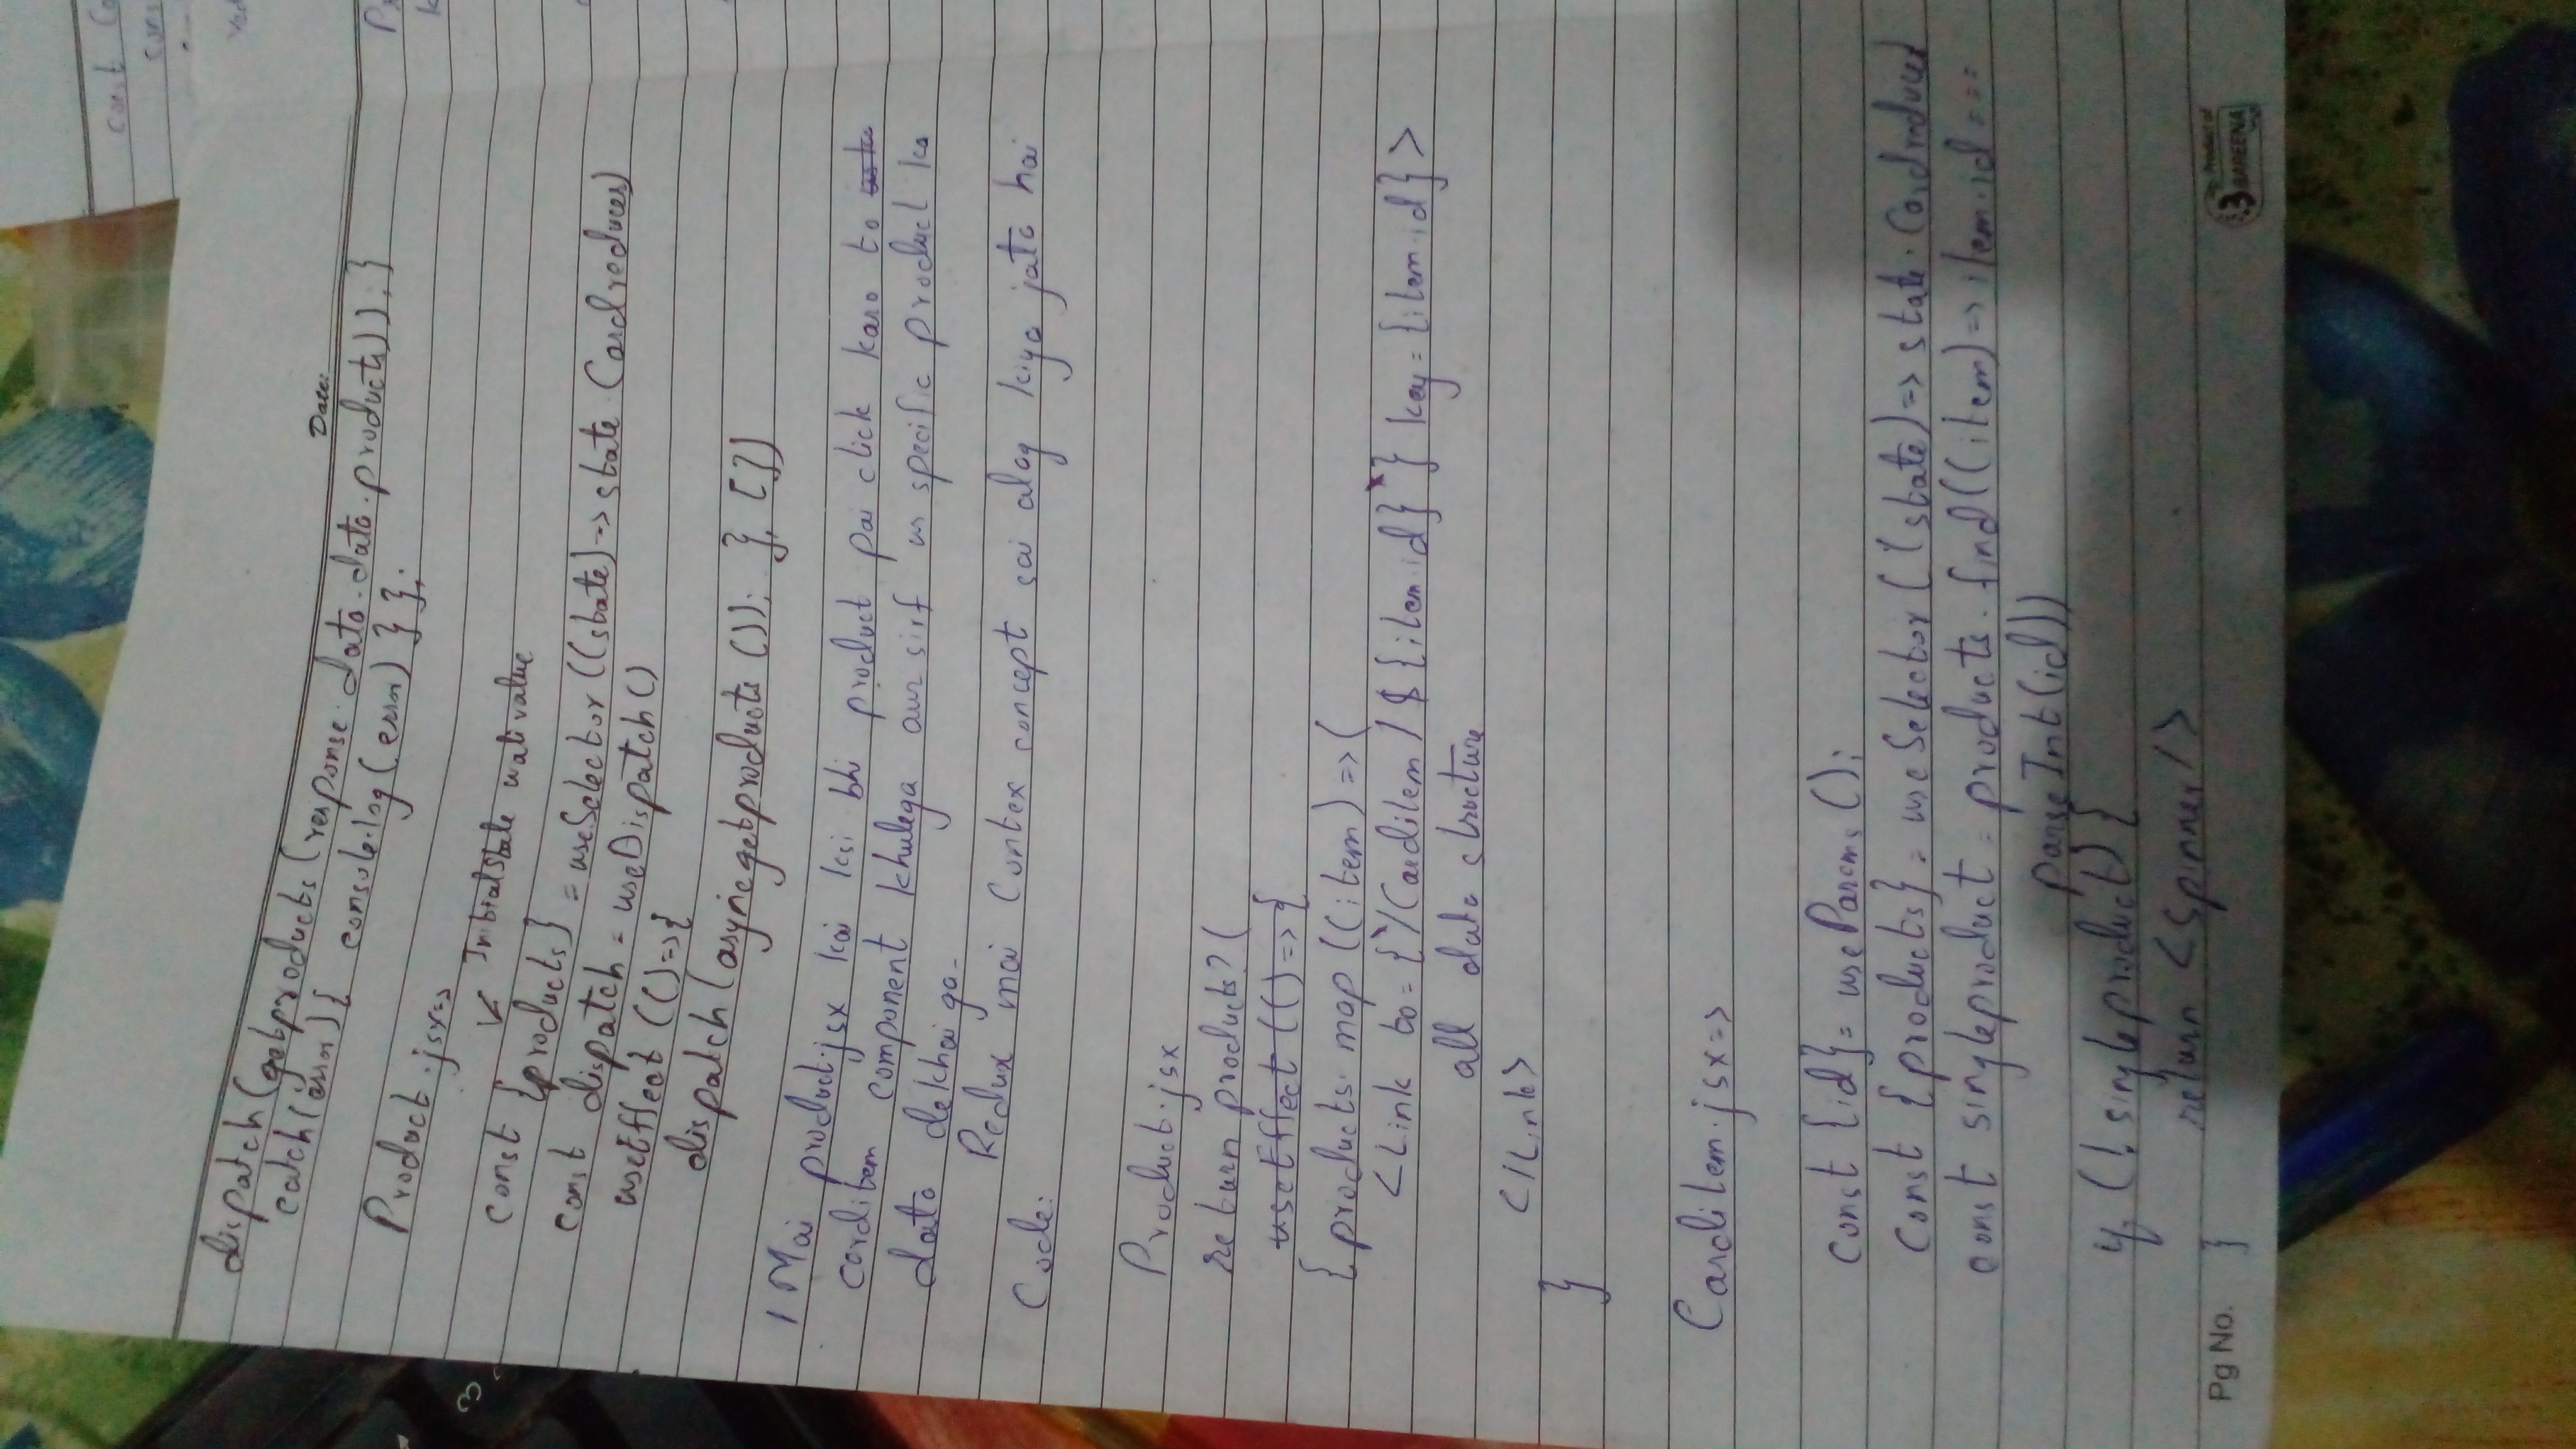 const Co
cons
Date:
dispatch(getproducts(response.data.data.products)); }
catch(error){ console.log(error) } };
Product.jsx=>
InitialState wali value
const {products} = useSelector((state)=> state.Cardreducer)
const dispatch = useDispatch()
useEffect (()=>{
dispatch(asyncgetproducts ()); }, [])
1 Mai product.jsx kai ksi bhi product pai click karo to
carditem component khulega aur sirf us specific product ka
data dekhai ga-
Redux mai Contex concept sai alag kiya jata hai
Code:
Product.jsx
return products? (
useEffect (()=> {
{products.map ((item)=>(
<Link to={`/Carditem/${item.id}`} key={item.id}>
all data structure
</Link>
}
Carditem.jsx=>
const {id}= useParams ();
const {products} = useSelector ((state)=> state.Cardreducer
const singleproduct = products.find((item)=> item.id ===
parseInt(id))
if (!singleproduct) {
return <Spinner/>
}
Pg No.
Product of
BAREENA
3